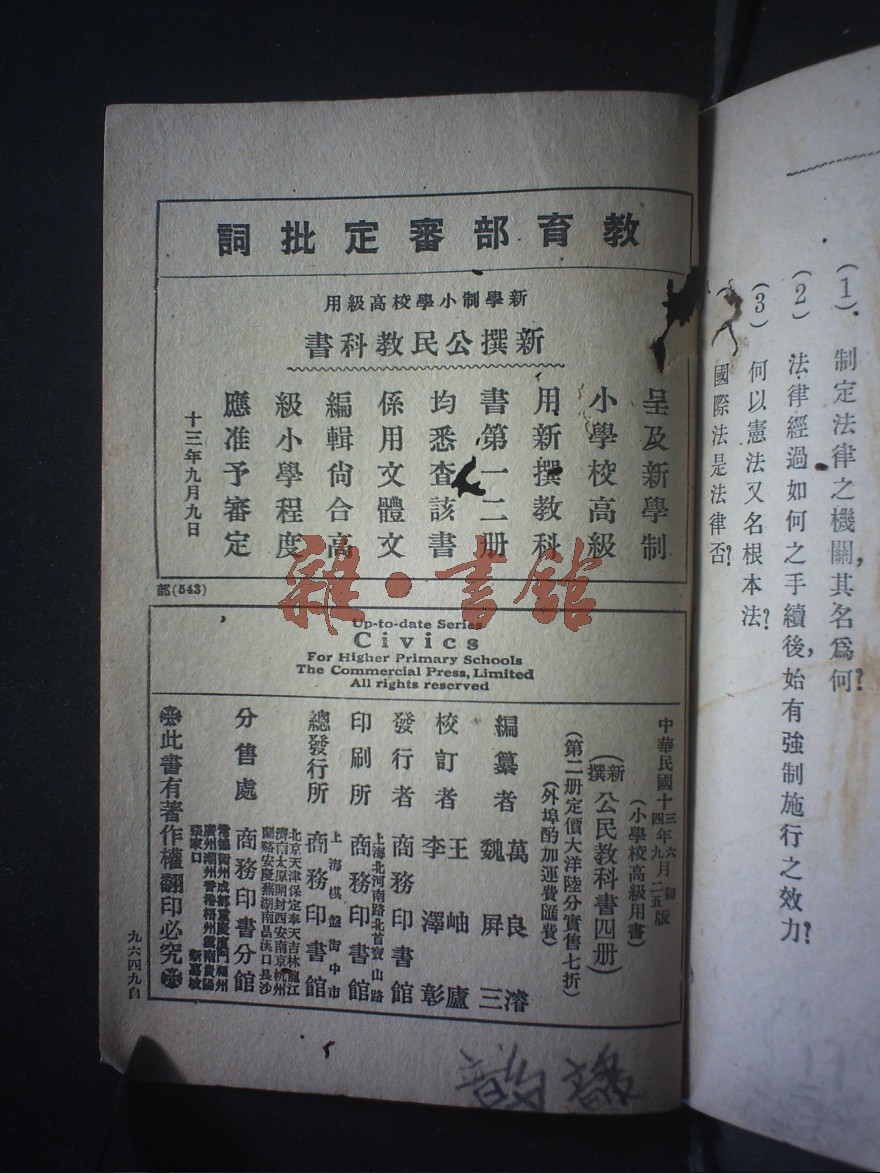 (1) 制定法律之機關,其名爲何?
(2) 法律經過如何之手續後,始有強制施行之效力?
(3) 何以憲法又名根本法?
國際法是法律否?
教育部審定批詞
新學制小學校高級用
新撰公民教科書
呈及新學制
小學校高級
用新撰教科
書第一二册
均悉查該書
係用文體文
編輯尙合高
級小學程度
應准予審定
十三年九月九日
部(543)
雜·書館
Up-to-date Series
Civics
For Higher Primary Schools
The Commercial Press, Limited
All rights reserved
中華民國十三年六月初版
十四年九月二五版
(小學校高級用書)
(新撰)公民教科書四册)
(第二册定價大洋陸分實售七折)
(外埠酌加運費匯費)
編纂者 萬良濬
魏屏三
校訂者 王岫廬
李澤彰
發行者 商務印書館
印刷所 上海北河南路北首寶山路
商務印書館
總發行所 上海棋盤街中市
商務印書館
北京天津保定奉天吉林龍江
濟南太原開封西安南京杭州
蘭谿安慶蕪湖南昌漢口長沙
分售處 商務印書分館
常德衡州成都重慶廈門福州
廣州潮州香港梧州雲南貴陽
張家口 新嘉坡
此書有著作權翻印必究
九六四九自